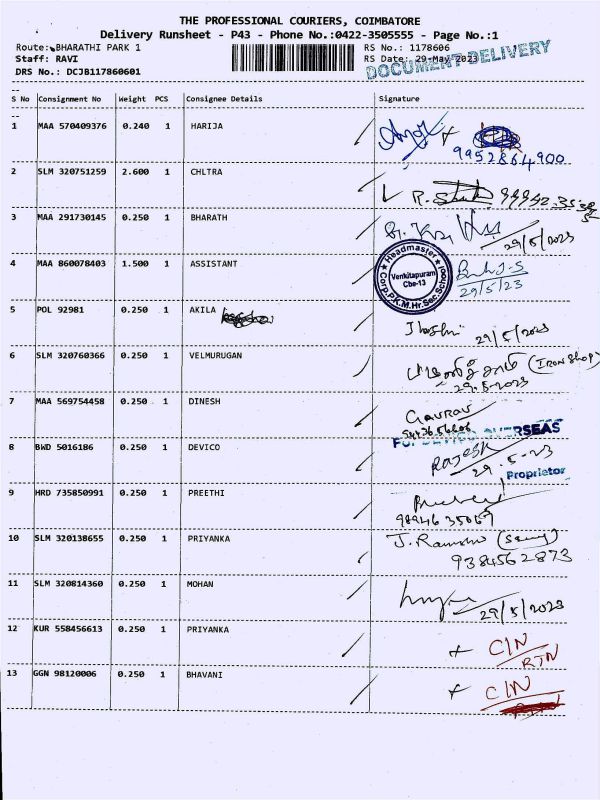 THE PROFESSIONAL COURIERS, COIMBATORE
Delivery Runsheet - P43 - Phone No.:0422-3505555 - Page No.:1
Route: BHARATHI PARK 1 RS No.: 1178606
Staff: RAVI RS Date: 29-May-2023
DRS No.: DCJB117860601 DOCUMENT DELIVERY
S No Consignment No Weight PCS Consignee Details Signature
1 MAA 570409376 0.240 1 HARIJA
9952864900
2 SLM 320751259 2.600 1 CHLTRA
3 MAA 291730145 0.250 1 BHARATH
29/5/2023
4 MAA 860078403 1.500 1 ASSISTANT
Headmaster
Venkitapuram
Cbe-13
Corp.P.K.M.Hr.Sec.School
29/5/23
5 POL 92981 0.250 1 AKILA
29/5/2023
6 SLM 320760366 0.250 1 VELMURUGAN
(IRON SHOP)
29.5.2023
7 MAA 569754458 0.250 1 DINESH
GAURAV
8 BWD 5016186 0.250 1 DEVICO
For DEVICO OVERSEAS
RAJESH
29.5-23
Proprietor
9 HRD 735850991 0.250 1 PREETHI
10 SLM 320138655 0.250 1 PRIYANKA
9384562873
11 SLM 320814360 0.250 1 MOHAN
29/5/2023
12 KUR 558456613 0.250 1 PRIYANKA
C/N
RTN
13 GGN 98120006 0.250 1 BHAVANI
C/N